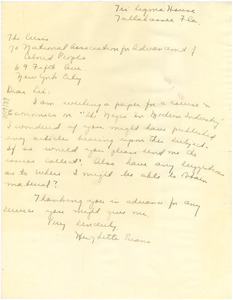 Tri Sigma House
Tallahassee Fla.
The Crisis
% National Association for Advancement of
Colored People
69 Fifth Ave
New York City
Dear Sir:
I am writing a paper for a course in
Economics on "The Negro in Modern Industry"
I wondered if you might have published
any articles bearing upon this subject.
If so would you please send me the
issues called? Also have any suggestions
as to where I might be able to obtain
material?
Thanking you in advance for any
services you might give me.
Very Sincerely,
Evans